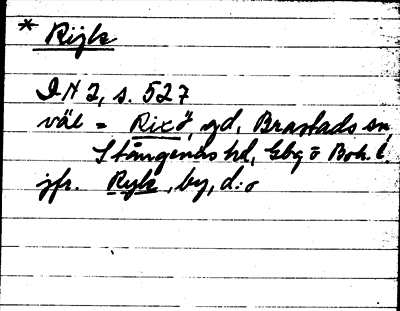 * Rijk
D N 2, s. 527
väl = Rixö, gd, Brastads sn,
Stångenäs hd, Gbg o Boh. l.
jfr. Ryk, by, d:o